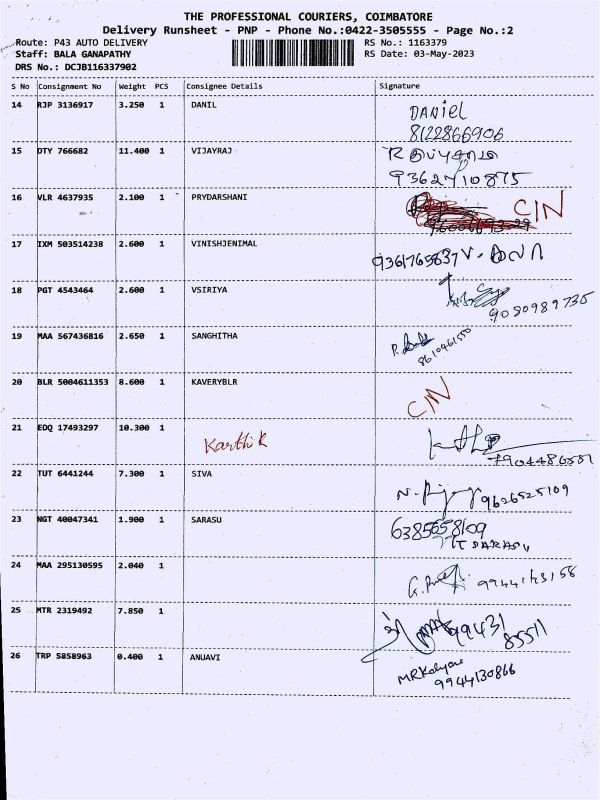 THE PROFESSIONAL COURIERS, COIMBATORE
Delivery Runsheet - PNP - Phone No.:0422-3505555 - Page No.:2
Route: P43 AUTO DELIVERY RS No.: 1163379
Staff: BALA GANAPATHY RS Date: 03-May-2023
DRS No.: DCJB116337902
S No Consignment No Weight PCS Consignee Details Signature
14 RJP 3136917 3.250 1 DANIL DANiel
8122866906
15 DTY 766682 11.400 1 VIJAYRAJ R
9362710875
16 VLR 4637935 2.100 1 PRYDARSHANI C/N
17 IXM 503514238 2.600 1 VINISHJENIMAL 9361765837
18 PGT 4543464 2.600 1 VSIRIYA
9080989735
19 MAA 567436816 2.650 1 SANGHITHA
8610461550
20 BLR 5004611353 8.600 1 KAVERYBLR C/N
21 EDQ 17493297 10.300 1 Karthik
7904486551
22 TUT 6441244 7.300 1 SIVA 9626525109
23 NGT 40047341 1.900 1 SARASU 6385658109
T SARASU
24 MAA 295130595 2.040 1
25 MTR 2319492 7.850 1 99431
85511
26 TRP 5858963 0.400 1 ANUAVI
9944130866